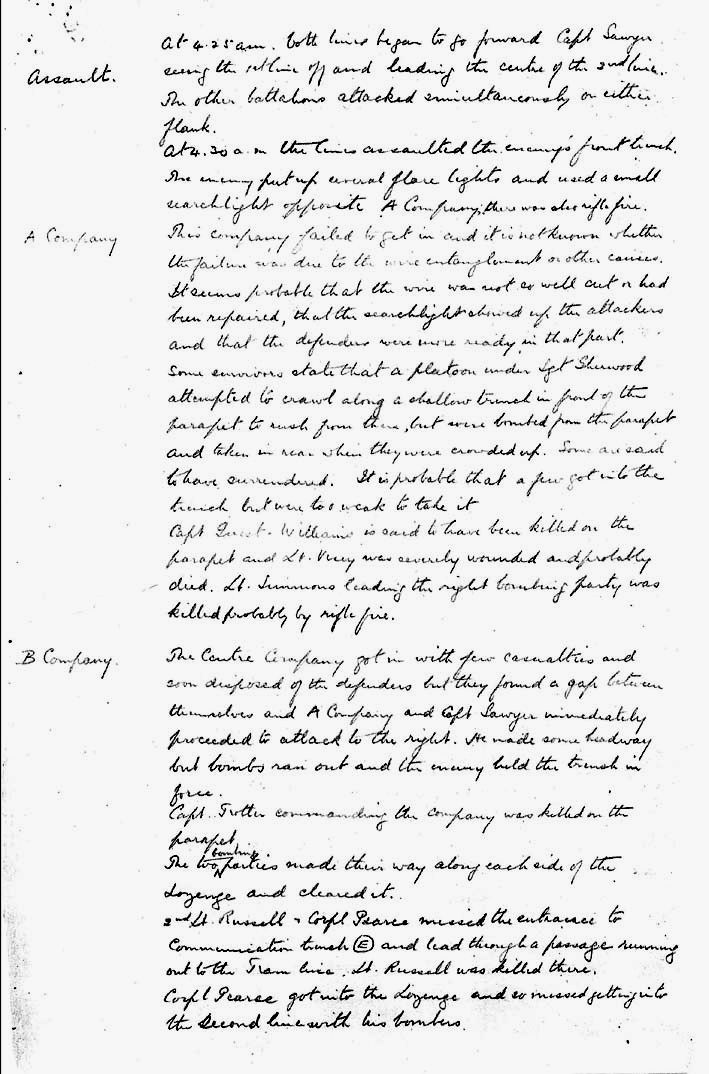 At 4.25 am. both lines began to go forward Capt Sawyer
Assault.
seeing the 1st line off and leading the centre of the 2nd line.
The other battalions attacked simultaneously on either
flank.
At 4.30 a.m the lines assaulted the enemy's front trench.
The enemy put up several flare lights and used a small
searchlight opposite A Company, there was also rifle fire.
A Company
This company failed to get in and it is not known whether
the failure was due to the wire entanglement or other causes.
It seems probable that the wire was not so well cut or had
been repaired, that the searchlight showed up the attackers
and that the defenders were more ready in that part.
Some survivors state that a platoon under Sgt Sherwood
attempted to crawl along a shallow trench in front of the
parapet to rush from there, but were bombed from the parapet
and taken in rear when they were crowded up. Some are said
to have surrendered. It is probable that a few got into the
trench but were too weak to take it
Capt Williams is said to have been killed on the
parapet and Lt. was severely wounded and probably
died. Lt. Simmons leading the right bombing party was
killed probably by rifle fire.
B Company.
The Centre Company got in with few casualties and
soon disposed of the defenders but they found a gap between
themselves and A Company and Capt Sawyer immediately
proceeded to attack to the right. He made some headway
but bombs ran out and the enemy held the trench in
force.
Capt. Trotter commanding the company was killed on the
parapet.
The two bombing parties made their way along each side of the
Lozenge and cleared it.
2nd Lt. Russell & Corpl Pearce missed the entrance to
Communication trench (E) and lead through a passage running
out to the Tram line. Lt. Russell was killed there.
Corpl Pearce got into the Lozenge and so missed getting into
the Second line with his bombers.